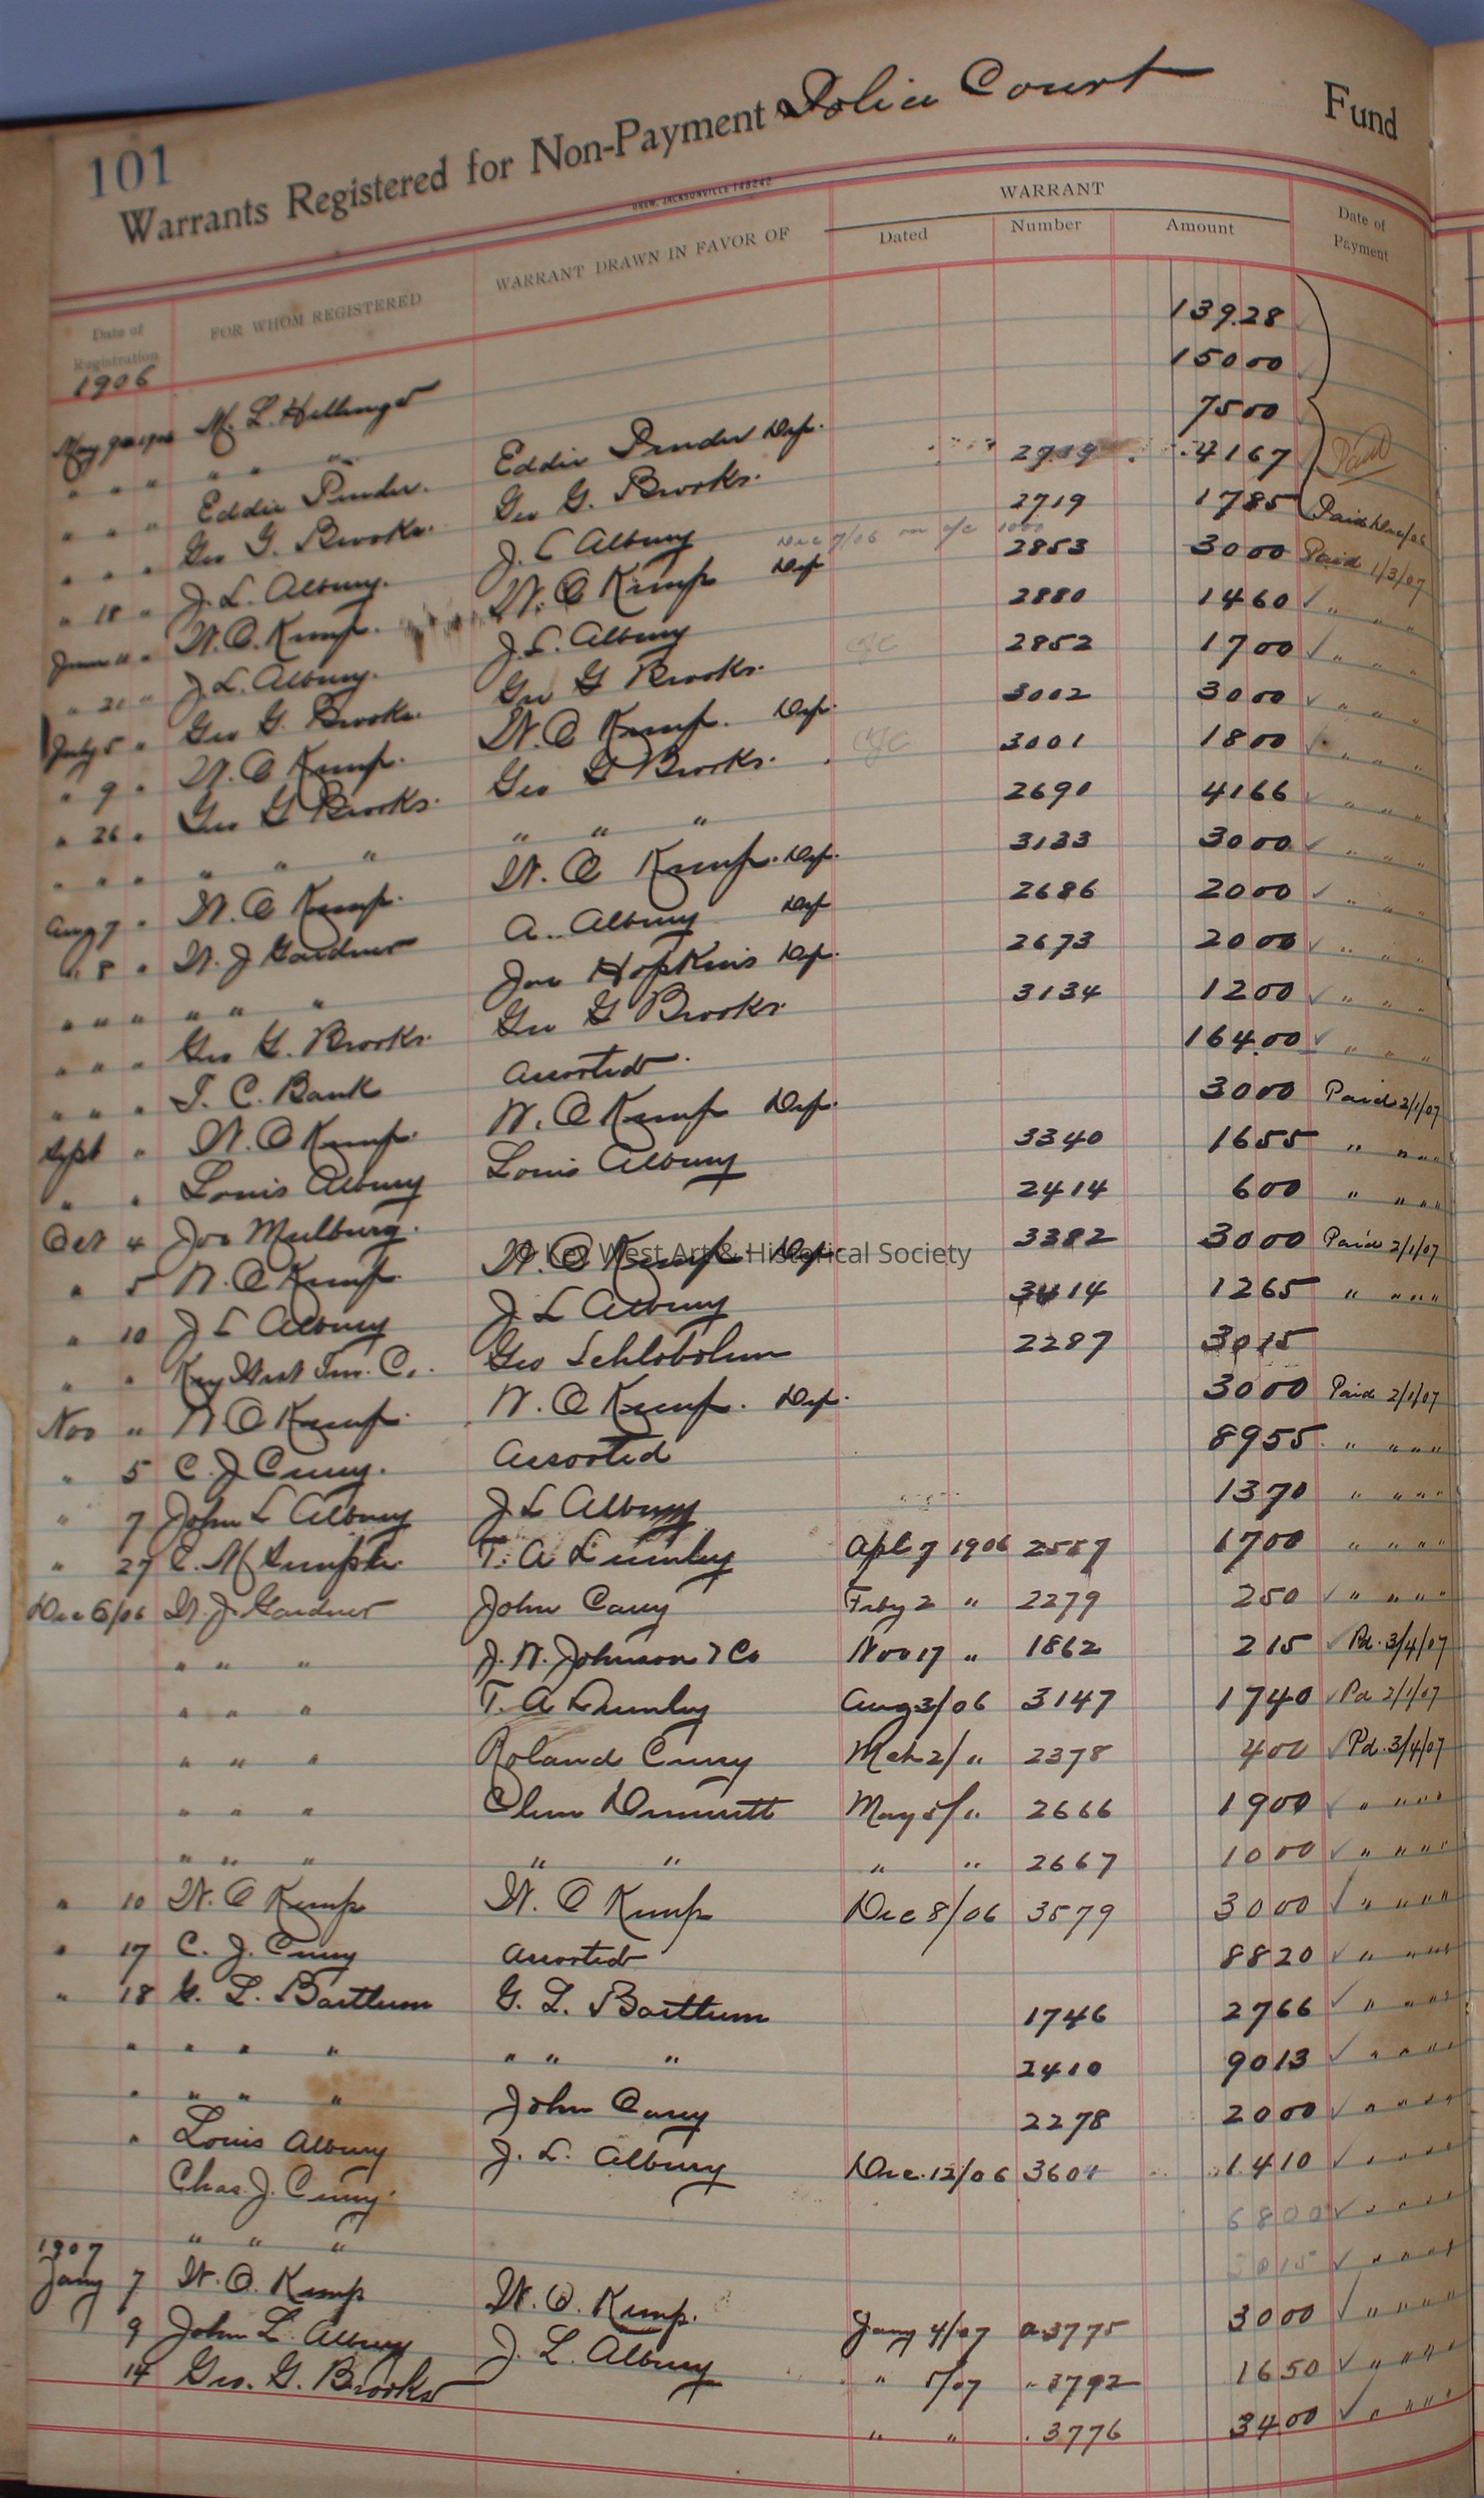 101
Warrants Registered for Non-Payment Police Court Fund
DREW, JACKSONVILLE 148242
Date of Registration FOR WHOM REGISTERED WARRANT DRAWN IN FAVOR OF WARRANT Dated Number Amount Date of Payment
1906
May 9th 1906 M. L. Hellinger 139.28
" " " " " " 150 00
" " " Eddie Pinder. Eddie Pinder Dep. 75 00 Paid
" " " Geo G. Brooks. Geo G. Brooks. 41 67
" 18 " J. L. Albury. J. L Albury 2719 17 85 Paid
Dec 7/06 on a/c 1000
June 11 " W. O. Kemp. W. O Kemp Dep 2853 30 00 Paid 1/3/07
" 21 " J. L. Albury. J. L. Albury 2880 14 60 ✓ " " "
July 5 " Geo G. Brooks. Geo G Brooks. CJC 2852 17 00 ✓ " " "
" 9 " W. O Kemp. W. O Kemp. Dep. 3002 30 00 ✓ " " "
" 26 " Geo G Brooks. Geo G Brooks. CJC 3001 18 00 ✓ " " "
" " " " " " " " " 2690 41 66 ✓ " " "
Aug 7 " W. O Kemp. W. O Kemp. Dep. 3133 30 00 ✓ " " "
" 8 " W. J Gardner A. Albury Dep 2686 20 00 ✓ " " "
" " " " " " Joe Hopkins Dep. 2673 20 00 ✓ " " "
" " " Geo G. Brooks. Geo G Brooks. 3134 12 00 ✓ " " "
" " " T. C. Bank Assorted. 164.00 ✓ " " "
Sept " W. O Kemp. W. O Kemp Dep. 30 00 Paid 2/1/07
" " Louis Albury Louis Albury 3340 16 55 " " " "
Oct 4 Joe Mulburg. 2414 6 00 " " " "
" 5 W. O Kemp. W. O Kemp Dep. 3382 30 00 Paid 2/1/07
© Key West Art & Historical Society
" 10 J L Albury J L Albury 3414 12 65 " " " "
" " Key West Inv. Co. Geo Schlobohm 2287 30 15
Nov " W O Kemp. W. O Kemp. Dep. 30 00 Paid 2/1/07
" 5 C. J Curry. Assorted 89 55 " " " "
" 7 John L Albury J L Albury 13 70 " " " "
" 27 T. A Lumley Apl 7 1906 2557 17 00 " " " "
Dec 6/06 W. J. Gardner John Carey Feby 2 " 2279 2 50 ✓ " " " "
" " " J. W. Johnson & Co Nov 17 " 1862 2 15 ✓ Pd. 3/4/07
" " " T. A Lumley Aug 3/06 3147 17 40 ✓ Pd 2/1/07
" " " Roland Curry Mch 2/ " 2378 4 00 ✓ Pd. 3/4/07
" " " May 5/ " 2666 19 00 ✓ " " " "
" " " " " " " 2667 10 00 ✓ " " " "
" 10 W. O Kemp W. O Kemp Dec 8/06 3579 30 00 ✓ " " " "
" 17 C. J. Curry Assorted 88 20 ✓ " " " "
" 18 G. L. Bartlum G. L. Bartlum 1746 27 66 ✓ " " " "
" " " " " " " 2410 90 13 ✓ " " " "
" " " " John Carey 2278 20 00 ✓ " " " "
" Louis Albury J. L. Albury Dec. 12/06 3601 14 10 ✓ " " " "
Chas. J. Curry. 68 00 ✓ " " " "
" " " 30 15 ✓ " " " "
1907
Jany 7 W. O. Kemp W. O. Kemp. Jany 4/07 3775 30 00 ✓ " " " "
9 John L. Albury J. L. Albury " 5/07 " 3792 16 50 ✓ " " " "
14 Geo. G. Brooks " " 3776 34 00 ✓ " " " "